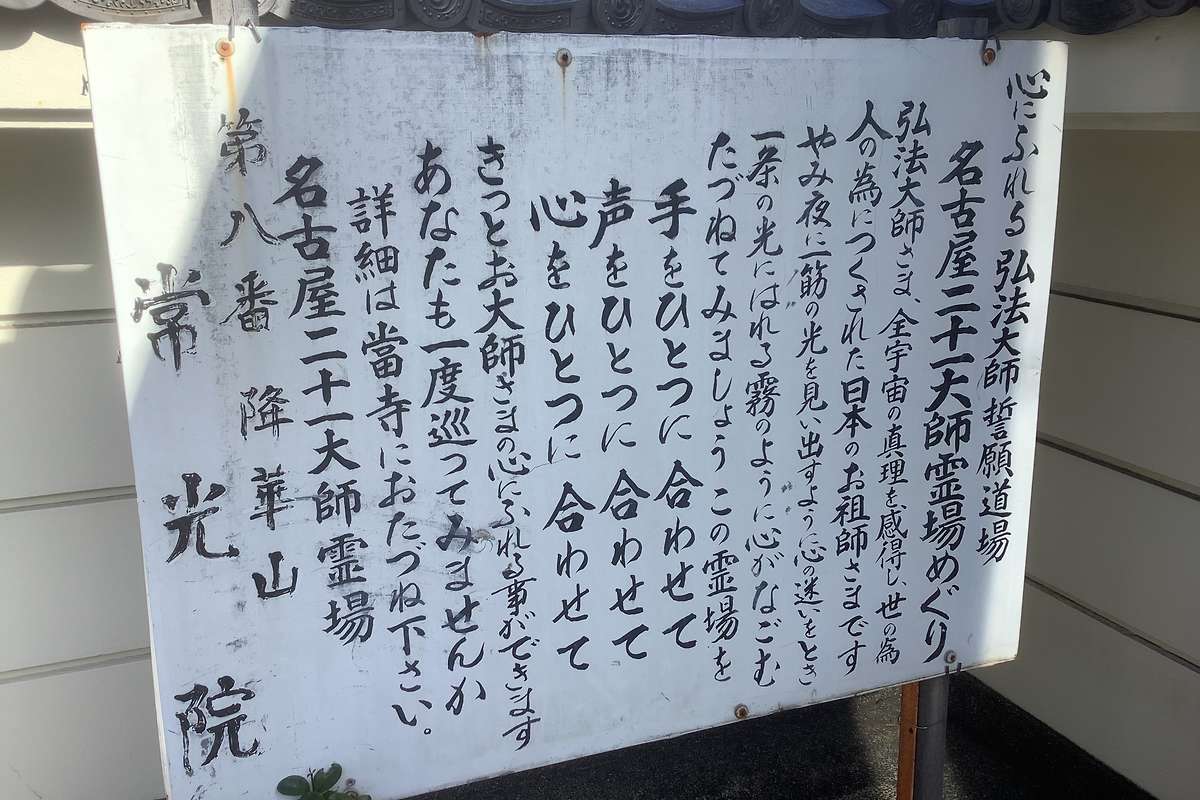 心にふれる 弘法大師誓願道場
名古屋二十一大師霊場めぐり
弘法大師さま、全宇宙の真理を感得し、世の為
人の為につくされた日本のお祖師さまです
やみ夜に一筋の光を見い出すように心の迷いをとき
一条の光にはれる霧のように心がなごむ
たづねてみましょうこの霊場を
手をひとつに 合わせて
声をひとつに 合わせて
心をひとつに 合わせて
きっとお大師さまの心にふれる事ができます
あなたも一度巡ってみませんか
詳細は當寺におたづね下さい。
名古屋二十一大師霊場
第八番 降華山
常光院